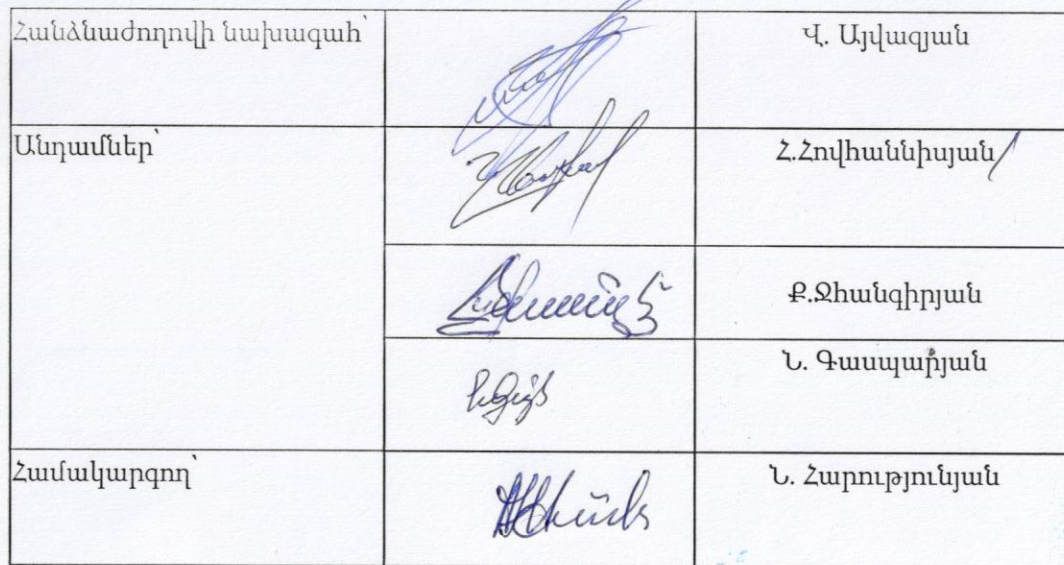 Հանձնաժողովի նախագահ՝
Վ. Այվազյան
Անդամներ՝
Հ.Հովհաննիսյան
Ք.Ջհանգիրյան
Ն. Գասպարյան
Համակարգող՝
Ն. Հարությունյան